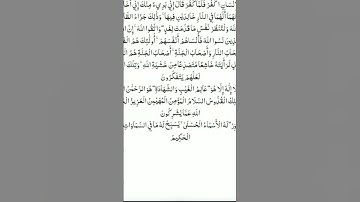 نْسَانِ اكْفُرْ فَلَمَّا كَفَرَ قَالَ إِنِّي بَرِيءٌ مِنْكَ إِنِّي
أَنَّهُمَا فِي النَّارِ خَالِدَيْنِ فِيهَا وَذَلِكَ جَزَاءُ
وَلْتَنْظُرْ نَفْسٌ مَا قَدَّمَتْ لِغَدٍ وَاتَّقُوا اللَّهَ إِنَّ
نَسُوا اللَّهَ فَأَنْسَاهُمْ أَنْفُسَهُمْ أُولَئِكَ هُمُ
النَّارِ وَأَصْحَابُ الْجَنَّةِ أَصْحَابُ الْجَنَّةِ هُمُ
لَرَأَيْتَهُ خَاشِعًا مُتَصَدِّعًا مِنْ خَشْيَةِ اللَّهِ وَتِلْكَ
لَعَلَّهُمْ يَتَفَكَّرُونَ
إِلَهَ إِلَّا هُوَ عَالِمُ الْغَيْبِ وَالشَّهَادَةِ هُوَ الرَّحْمَنُ
الْقُدُّوسُ السَّلَامُ الْمُؤْمِنُ الْمُهَيْمِنُ الْعَزِيزُ
اللَّهِ عَمَّا يُشْرِكُونَ
لَهُ الْأَسْمَاءُ الْحُسْنَى يُسَبِّحُ لَهُ مَا فِي السَّمَاوَاتِ
الْحَكِيمُ